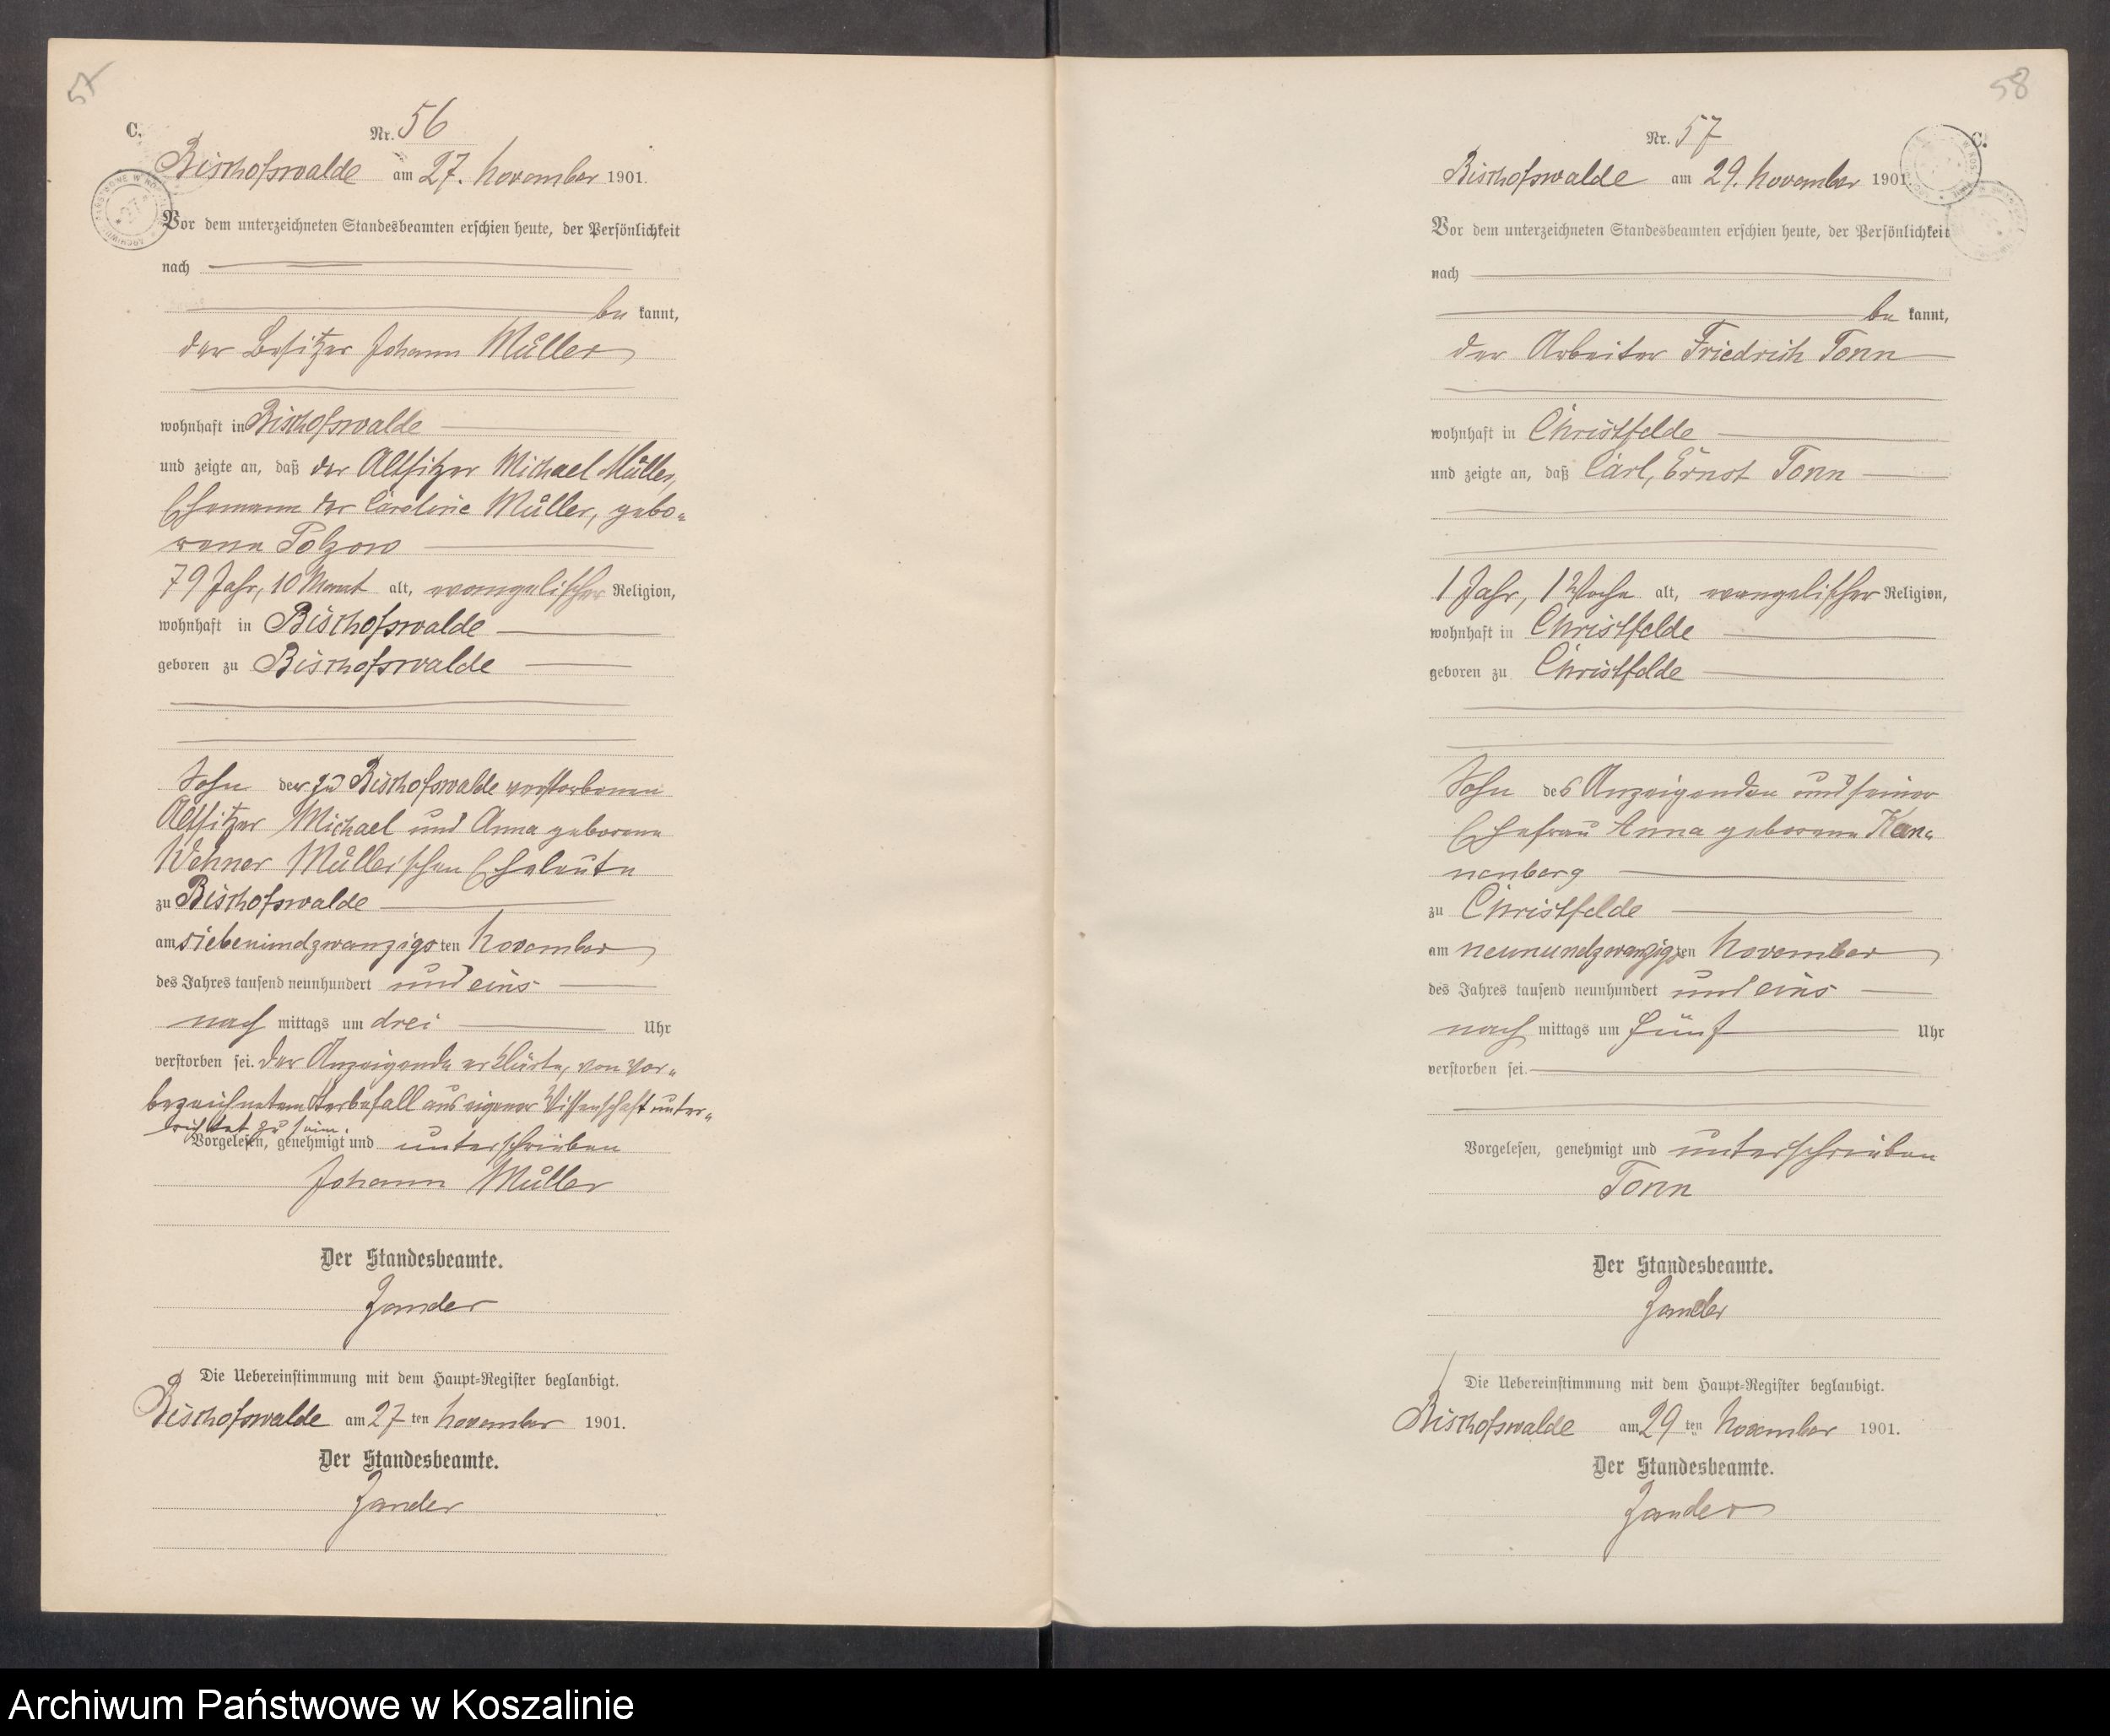 57
C.
Nr. 56
Bischofswalde am 27. November 1901.
Vor dem unterzeichneten Standesbeamten erschien heute, der Persönlichkeit
nach
be kannt,
der Besitzer Johann Müller
wohnhaft in Bischofswalde
und zeigte an, daß der Altsitzer Michael Müller,
Ehemann der Caroline Müller, gebo-
rene Polzow
79 Jahr, 10 Monat alt, evangelischer Religion,
wohnhaft in Bischofswalde
geboren zu Bischofswalde
Sohn der zu Bischofswalde verstorbenen
Altsitzer Michael und Anna geborene
Wehner Müller'schen Eheleute
zu Bischofswalde
am siebenundzwanzigsten November
des Jahres tausend neunhundert und eins
nach mittags um drei Uhr
verstorben sei. Der Anzeigende erklärte, von vor-
bezeichnetem Sterbefall aus eigener Wissenschaft unter-
richtet zu sein.
Vorgelesen, genehmigt und unterschrieben
Johann Müller
Der Standesbeamte.
Zander
Die Uebereinstimmung mit dem Haupt-Register beglaubigt.
Bischofswalde am 27 ten November 1901.
Der Standesbeamte.
Zander
58
C.
Nr. 57
Bischofswalde am 29. November 1901.
Vor dem unterzeichneten Standesbeamten erschien heute, der Persönlichkeit
nach
be kannt,
der Arbeiter Friedrich Tonn
wohnhaft in Christfelde
und zeigte an, daß Carl, Ernst Tonn
1 Jahr, 1 Woche alt, evangelischer Religion,
wohnhaft in Christfelde
geboren zu Christfelde
Sohn des Anzeigenden und seiner
Ehefrau Anna geborene Kan-
nenberg
zu Christfelde
am neunundzwanzigsten November
des Jahres tausend neunhundert und eins
nach mittags um fünf Uhr
verstorben sei.
Vorgelesen, genehmigt und unterschrieben
Tonn
Der Standesbeamte.
Zander
Die Uebereinstimmung mit dem Haupt-Register beglaubigt.
Bischofswalde am 29 ten November 1901.
Der Standesbeamte.
Zander
Archiwum Państwowe w Koszalinie